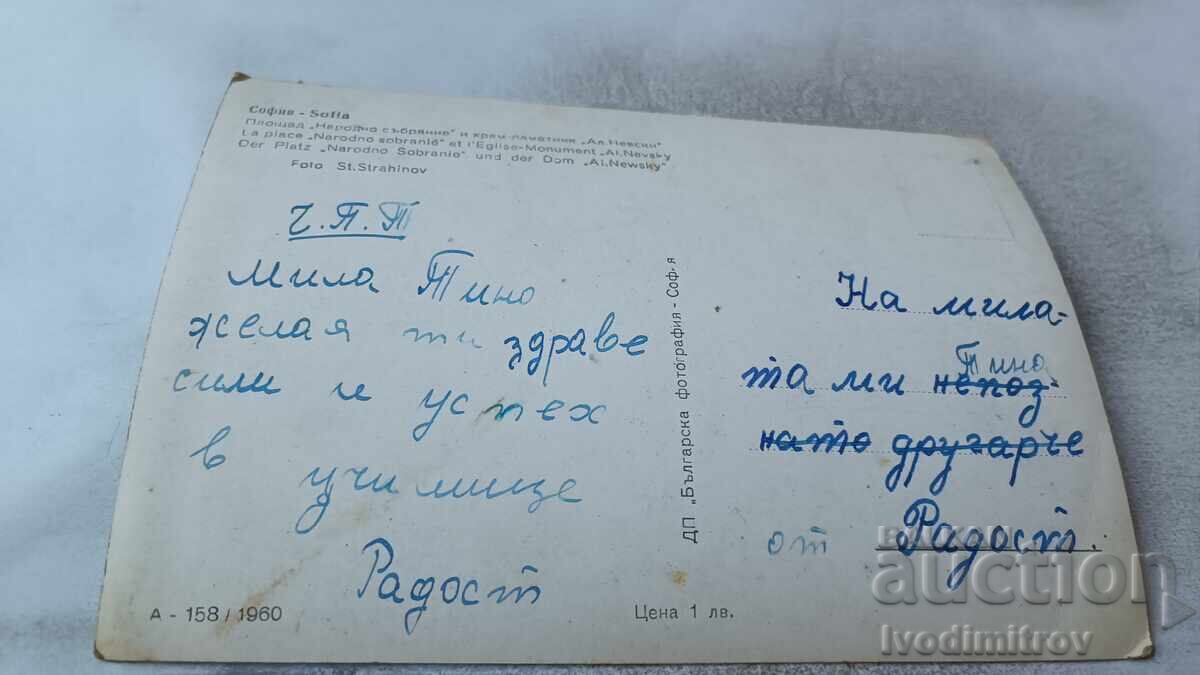 София - Sofia
Площад „Народно събрание" и храм-паметник „Ал. Невски"
La place „Narodno sobranié" et l'Eglise-Monument „Al. Nevsky
Der Platz „Narodno Sobranie" und der Dom „Al. Newsky"
Foto St. Strahinov
Ч.П.Т
Мила Тино
желая ти здраве
сили и успех
в
училище
Радост
А - 158 / 1960
Цена 1 лв.
ДП „Българска фотография - Соф-я
На мила-
та ми непоз-
Тино
нато другарче
от Радост.
BALKAN
auction
Ivodimitrov